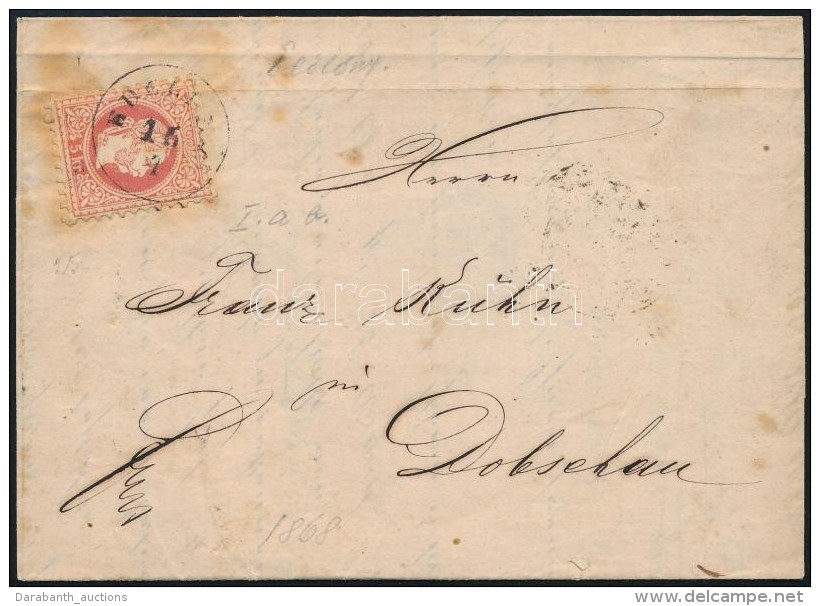 5 kr.
EDELÉNY
15
4
I. a b.
Herrn
Franz Kühn
in
Dobschau
1868
darabanth
Darabanth_auctions
delcampe.net